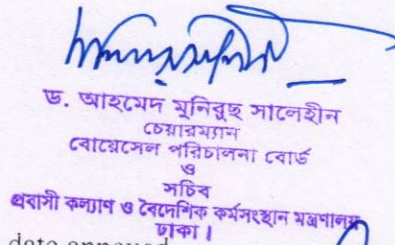 ড. আহমেদ মুনিরুছ সালেহীন
চেয়ারম্যান
বোয়েসেল পরিচালনা বোর্ড
ও
সচিব
প্রবাসী কল্যাণ ও বৈদেশিক কর্মসংস্থান মন্ত্রণালয়
ঢাকা।